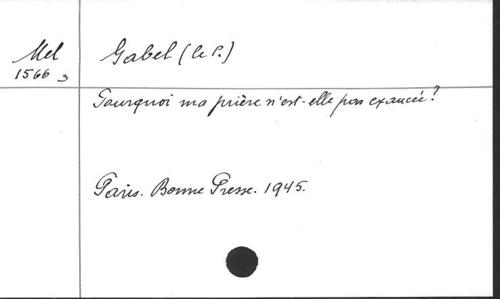 Mel
1566 3
Gabel (le P.)
Pourquoi ma prière n'est-elle pas exaucée?
Paris. Bonne Presse. 1945.